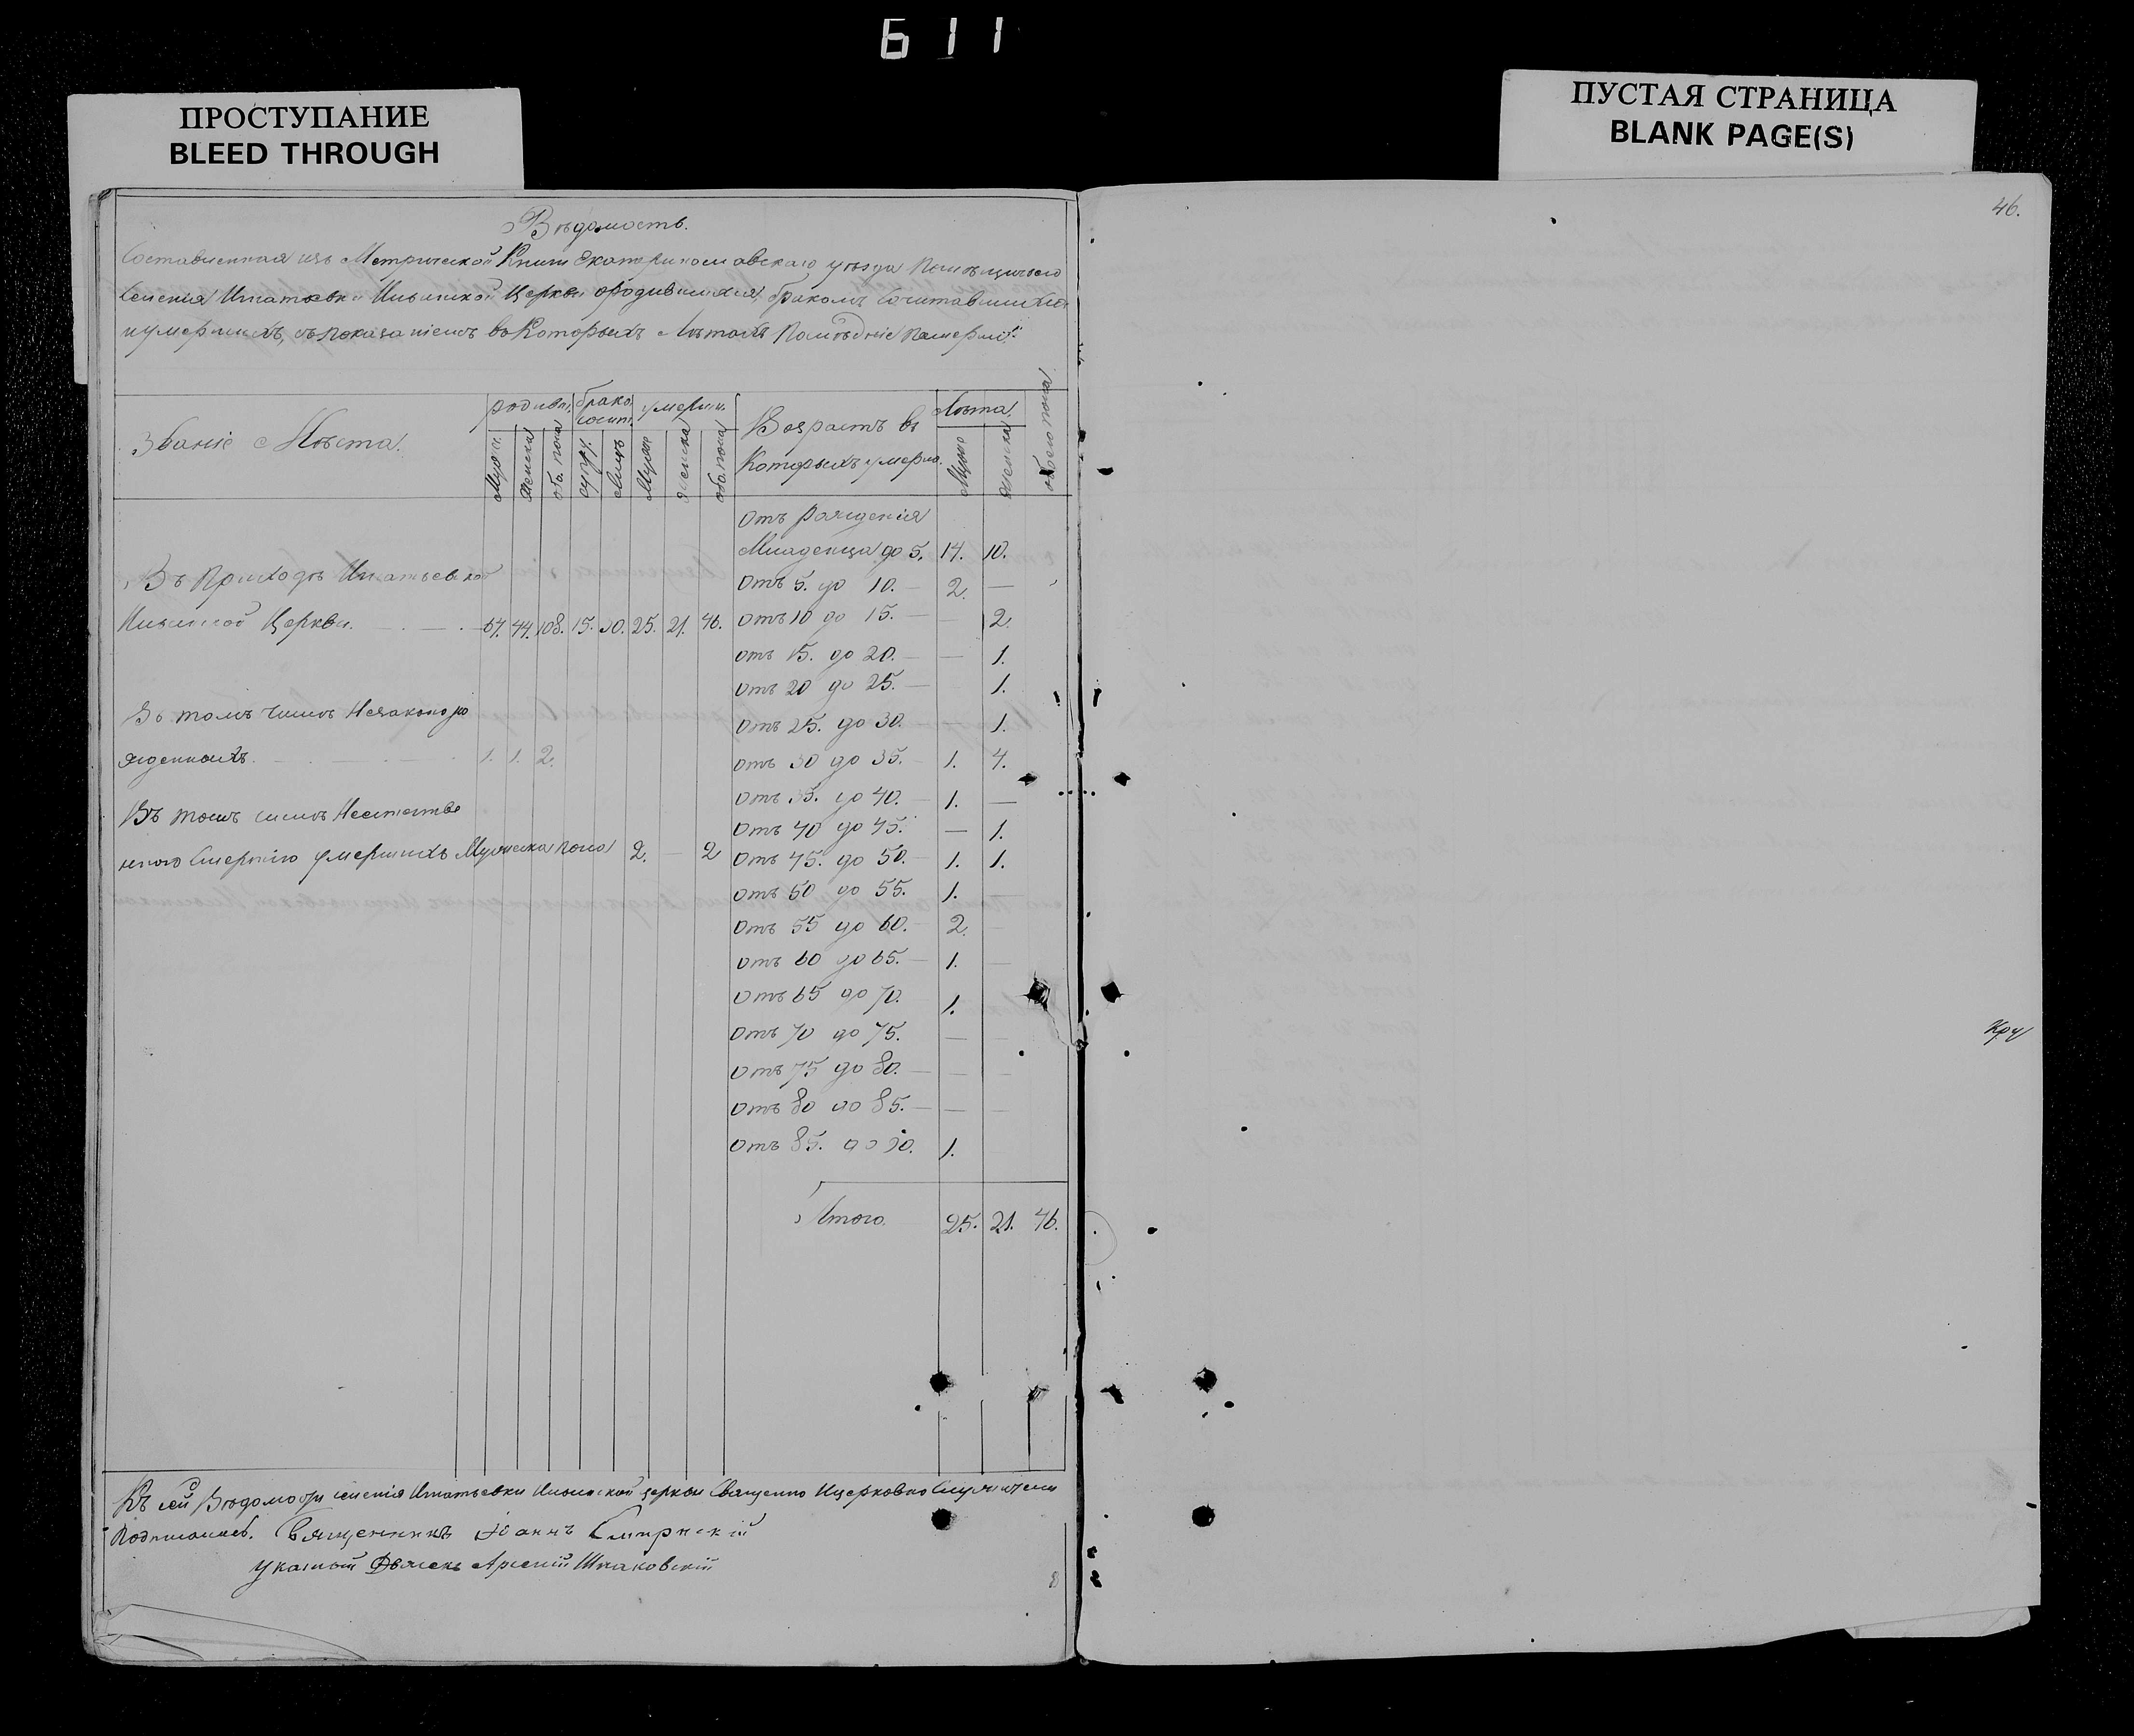 611
ПРОСТУПАНИЕ
BLEED THROUGH
ПУСТАЯ СТРАНИЦА
BLANK PAGE(S)
46.
Вѣдомость.
Составленная изъ Метрической Книги Екатеринославскаго уѣзда Помѣщичьяго
Селенія Игнатьевки Ильинской Церкви ородившихся, бракомъ Сочитавшихся
иумершихъ, съ показаніемъ въ Которыхъ Лѣтахъ Послѣдніе Памерли.
Званіе Мѣста.
родивш. брако сочит. умерш.
Возрастъ въ Которыхъ умерло.
Лѣта.
Муж. Женска обо. пола супру. Лицъ Муж Женска обо. пола Муж Женска обоего пола
Отъ Рожденія
Младенца до 5. 14. 10.
Въ Приходѣ Игнатьевской
Отъ 5. до 10. — 2. —
Ильинской Церкви. 64. 44. 108. 15. 30. 25. 21. 46.
Отъ 10 до 15. — 2.
отъ 15. до 20. — — 1.
отъ 20 до 25. — 1.
Въ томъ числѣ Незаконоро
отъ 25. до 30. — — 1.
жденныхъ. 1. 1. 2.
отъ 30 до 35. — 1. 4.
отъ 35. до 40. — 1. —
Въ томъ числѣ Неестестве
Отъ 40 до 45. — 1.
нною Смертію умершихъ Мужеска пола 2. — 2
Отъ 45. до 50. — 1. 1.
отъ 50 до 55. 1. —
Отъ 55 до 60. — 2. —
отъ 60 до 65. — 1. —
Отъ 65 до 70. 1.
Отъ 70 до 75. — —
Отъ 75 до 80. — — —
отъ 80 до 85. — — —
отъ 85. до 90. 1.
Итого. 25. 21. 46.
Къ сей Вѣдомости селенія Игнатьевки Ильинской церкви Священно Ицерковно Служители
Подписались. Священникъ Іоаннъ Смирнскій
Указный Дьячекъ Арсеній Шпаковскій
Кру